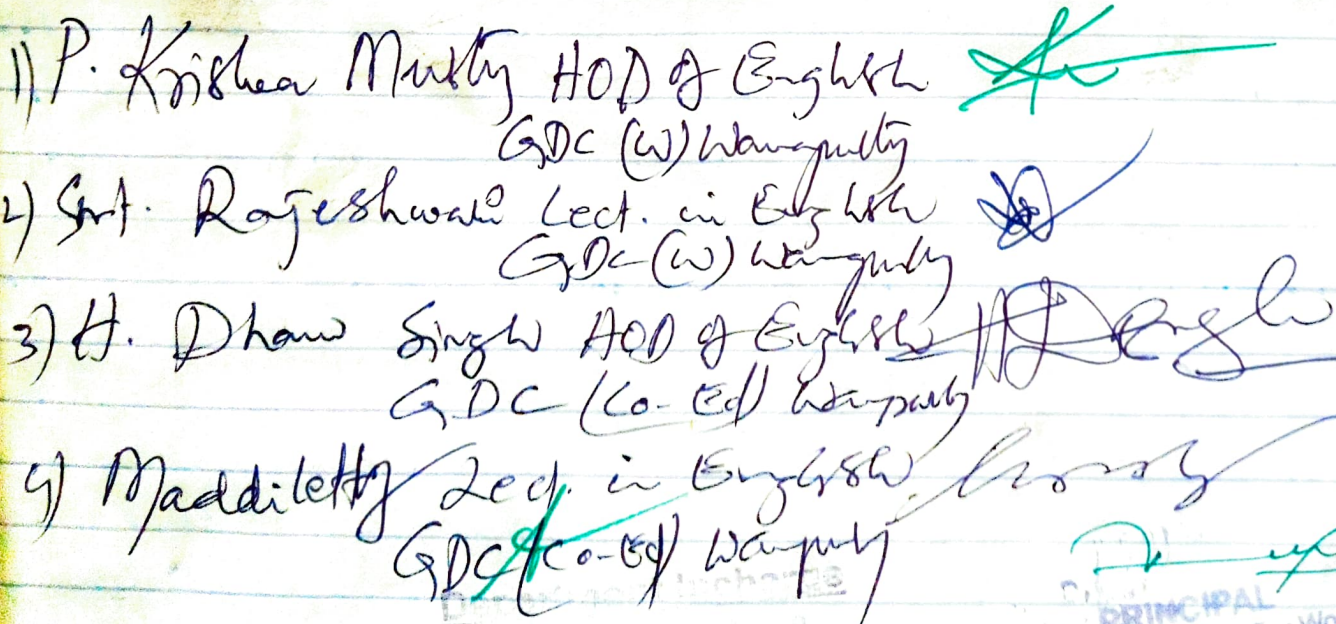 1) P. Krishna Murthy HOD of English
GDC (W) Wanaparthy
2) Smt. Rajeshwari Lect. in English
GDC (W) Wanaparthy
3) H. Dhan Singh HOD of English
GDC (Co-Ed) Wanaparthy
4) Maddiletty Lect. in English
GDC (Co-Ed) Wanaparthy
PRINCIPAL